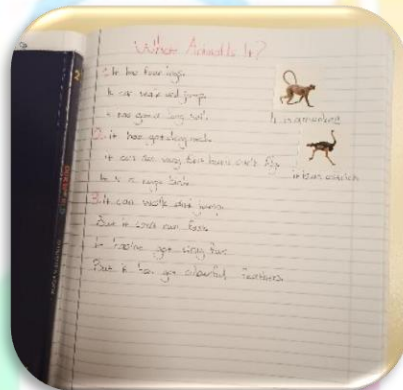 What Animal Is It?
1. It has four legs
It can walk and jump
It has got a long tail
It is a monkey
2. it has got a long neck
it can run very fast but it can't fly
It is a huge bird
it is an ostrich
3. It can walk and jump
But it can't run fast
It hasn't got any fur
But it has got colourful feathers